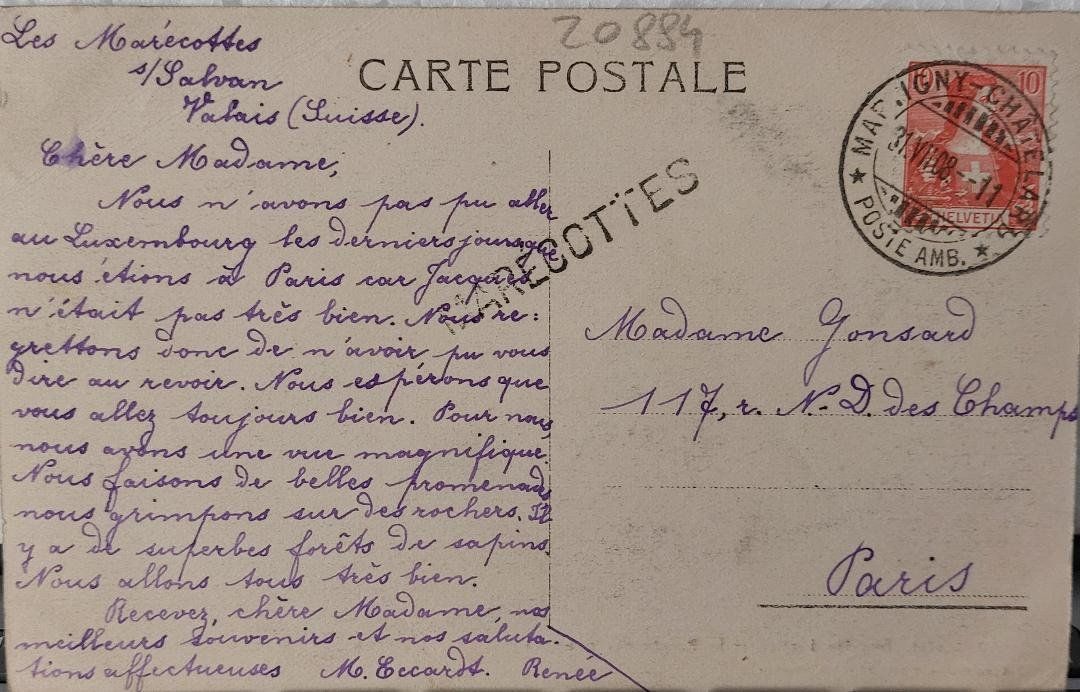 Les Marécottes
s/Salvan
Valais (Suisse).
20894
CARTE POSTALE
10
HELVETIA
MARTIGNY-CHÂTELARD
31.VII.08.-11
★ POSTE AMB. ★
MARÉCOTTES
Chère Madame,
Nous n'avons pas pu aller
au Luxembourg les derniers jours que
nous étions à Paris car Jacques
n'était pas très bien. Nous re:
grettons donc de n'avoir pu vous
dire au revoir. Nous espérons que
vous allez toujours bien. Pour nous,
nous avons une vue magnifique.
Nous faisons de belles promenades
nous grimpons sur des rochers. Il
y a de superbes forêts de sapins.
Nous allons tous très bien.
Recevez, chère Madame, nos
meilleurs souvenirs et nos saluta-
tions affectueuses M. Eccardt. Renée
Madame Gonsard
117, r. N.-D. des Champs
Paris